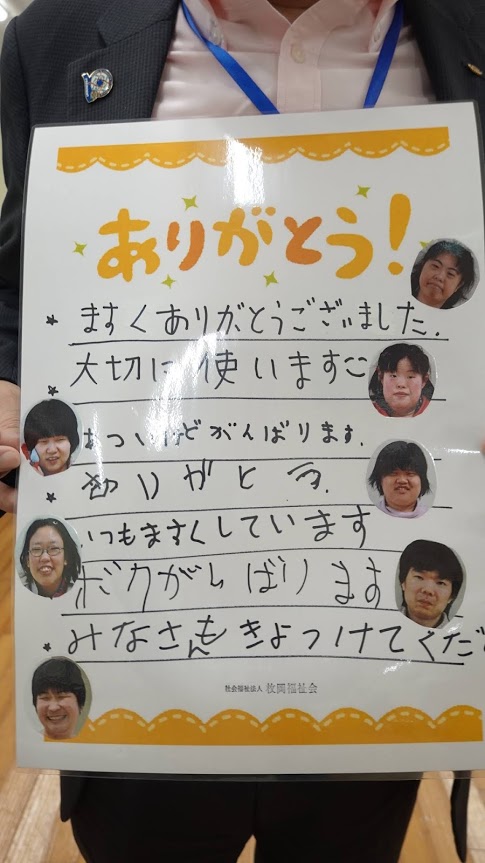 ありがとう!
ますくありがとうございました.
大切に使います
あついけどがんばります.
ありがとう.
いつもますくしています
ボクがんばります
みなさんもきょつけてくだ
社会福祉法人 枚岡福祉会